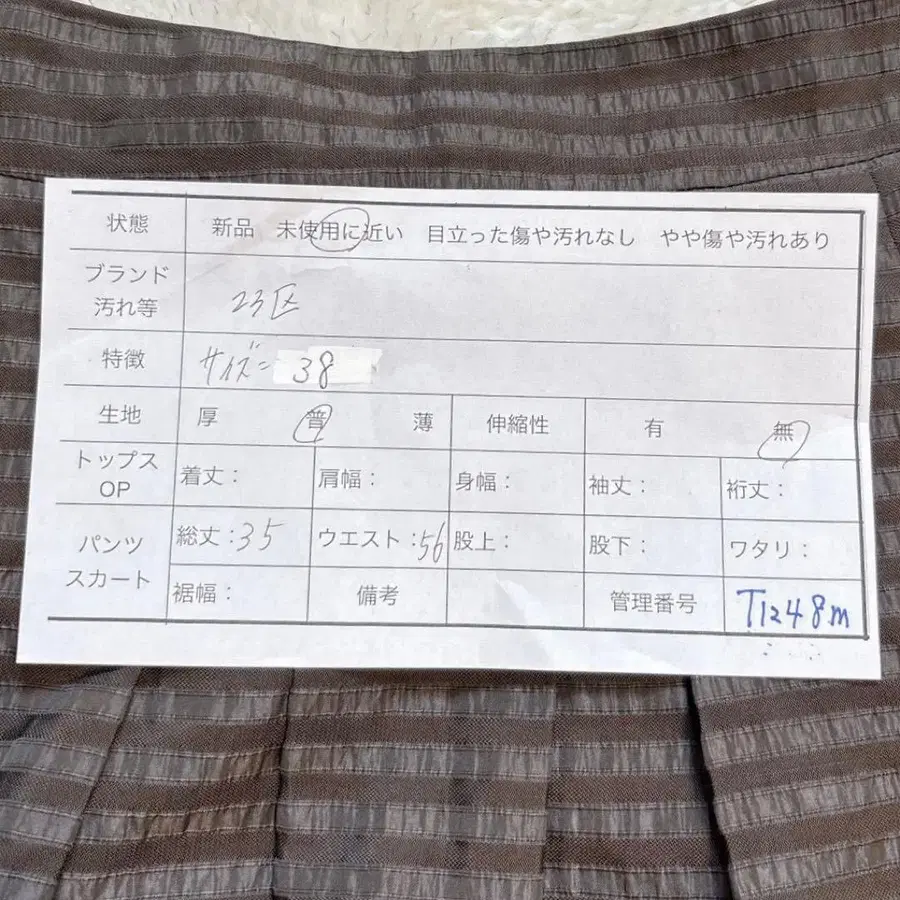 状態 新品 未使用に近い 目立った傷や汚れなし やや傷や汚れあり
ブランド
汚れ等 23区
特徴 サイズ= 38
生地 厚 普 薄 伸縮性 有 無
トップス
OP 着丈: 肩幅: 身幅: 袖丈: 裄丈:
パンツ
スカート 総丈:35 ウエスト:56 股上: 股下: ワタリ:
裾幅: 備考 管理番号 T1248m